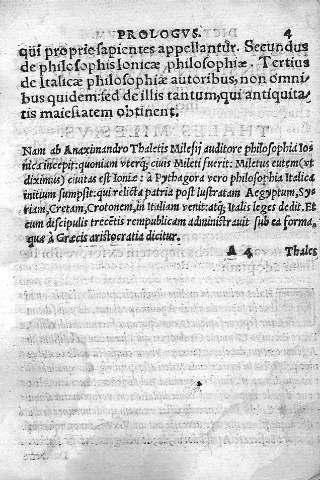 PROLOGVS. 4
qui proprie sapientes appellantur. Secundus
de philosophis Ionicæ philosophiæ. Tertius
de Italicæ philosophiæ autoribus, non omni
bus quidem: sed de illis tantum, qui antiquita
tis maiestatem obtinent.
Nam ab Anaximandro Thaletis Milesij auditore philosophia Io
nica incepit: quoniam vterq; ciuis Mileti fuerit: Miletus autem (vt
diximus) ciuitas est Ioniæ: à Pythagora vero philosophia Italica
initium sumpsit: qui relicta patria post lustratam Aegyptum, Sy
riam, Cretam, Crotonem, in Italiam venit: atq; Italis leges dedit. Et
cum discipulis trecētis rempublicam administrauit sub ea forma,
quæ à Græcis aristocratia dicitur.
A 4 Thales